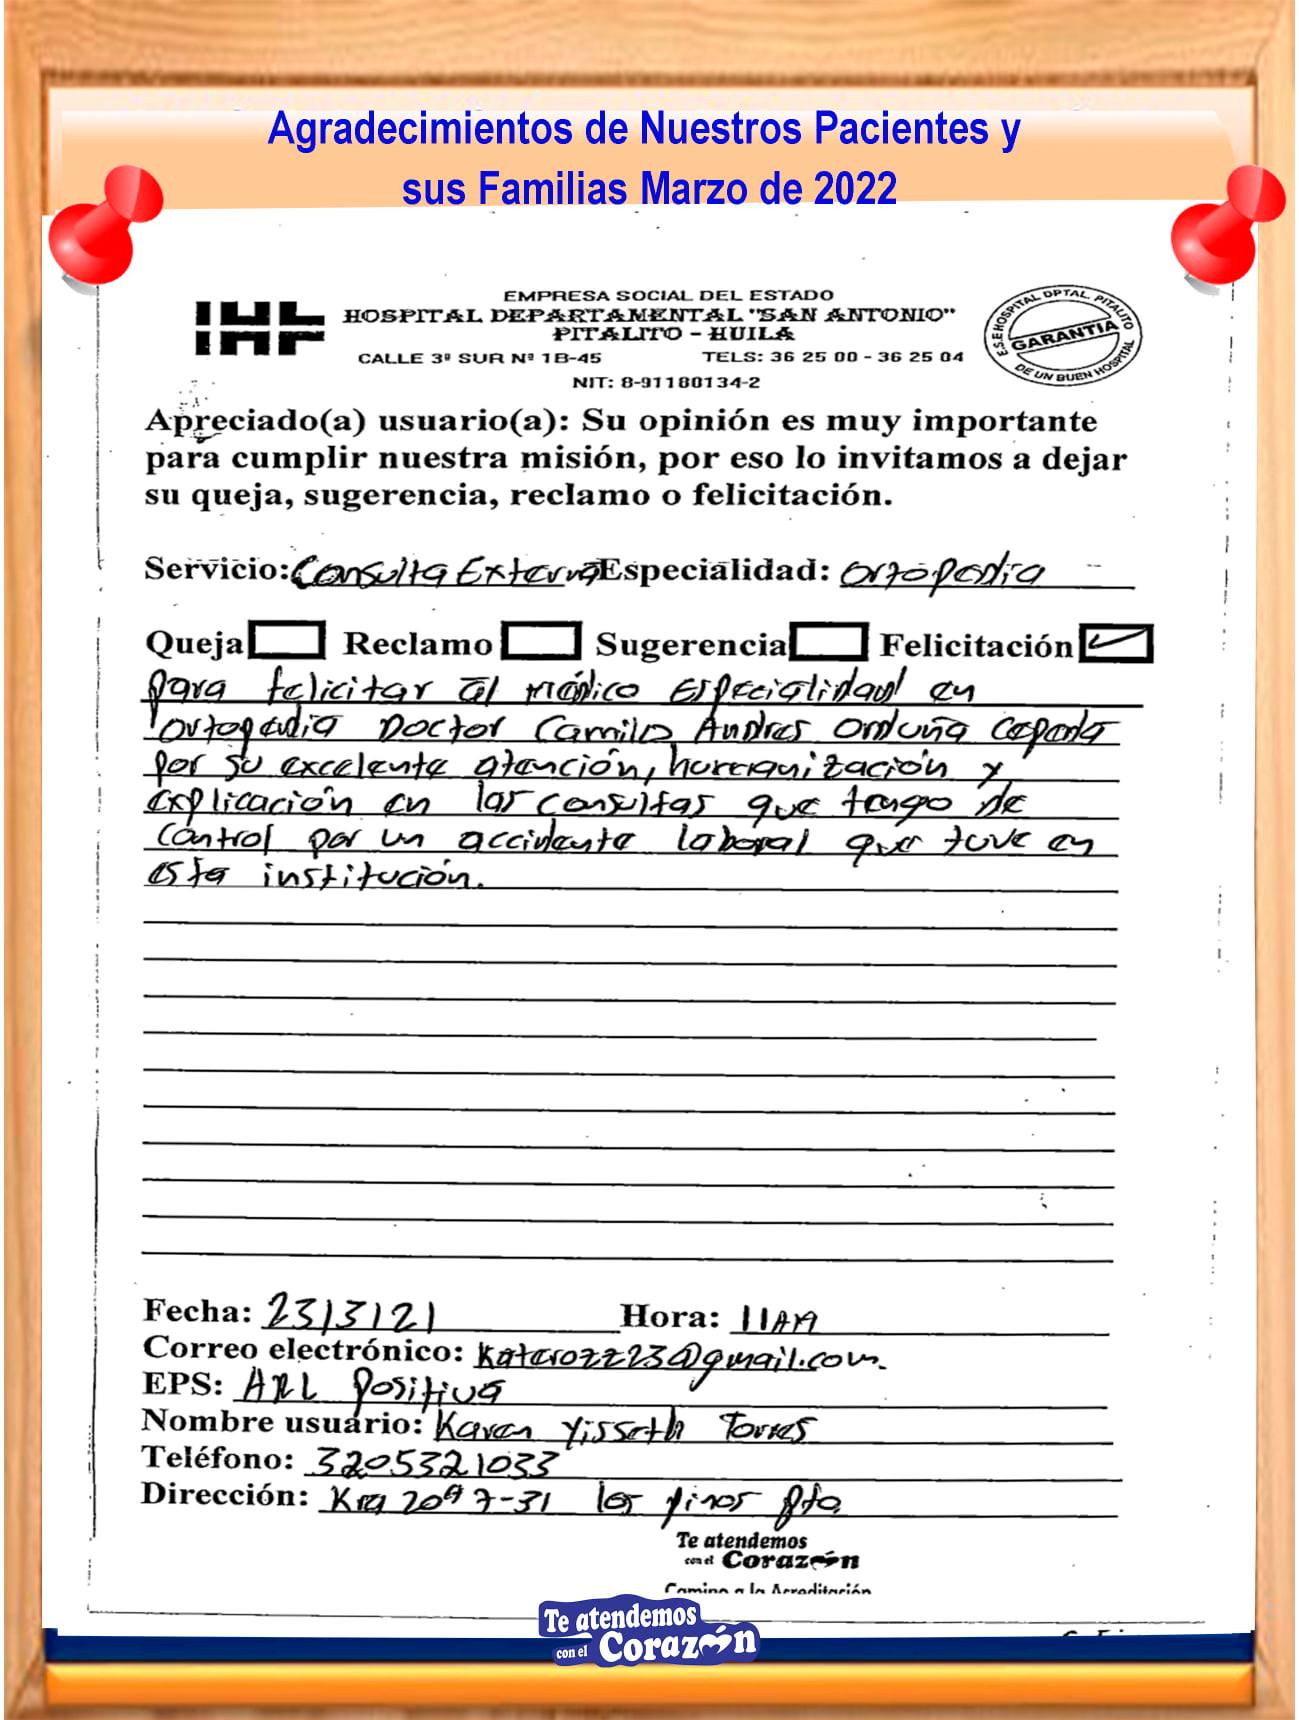 Agradecimientos de Nuestros Pacientes y
sus Familias Marzo de 2022
EMPRESA SOCIAL DEL ESTADO
HOSPITAL DEPARTAMENTAL "SAN ANTONIO"
PITALITO - HUILA
CALLE 3ª SUR Nº 1B-45 TELS: 36 25 00 - 36 25 04
NIT: 8-91180134-2
E.S.E HOSPITAL DPTAL. PITALITO
GARANTIA
DE UN BUEN HOSPITAL
Apreciado(a) usuario(a): Su opinión es muy importante
para cumplir nuestra misión, por eso lo invitamos a dejar
su queja, sugerencia, reclamo o felicitación.
Servicio: Consulta Externa Especialidad: Ortopedia
Queja Reclamo Sugerencia Felicitación
para felicitar al médico Especialidad en
Ortopedia Doctor Camilo Andres Orduña Cepeda
por su excelente atención, humanización y
explicación en las consultas que tengo de
control por un accidente laboral que tuve en
esta institución.
Fecha: 23/3/21 Hora: 11AM
Correo electrónico: @gmail.com.
EPS: ARL Positiva
Nombre usuario: Karen Yisseth Torres
Teléfono: 3205321033
Dirección: Kra 20ª 7-31 los pinos Pto
Te atendemos
con el Corazón
Camino a la Acreditación
Te atendemos
con el Corazón